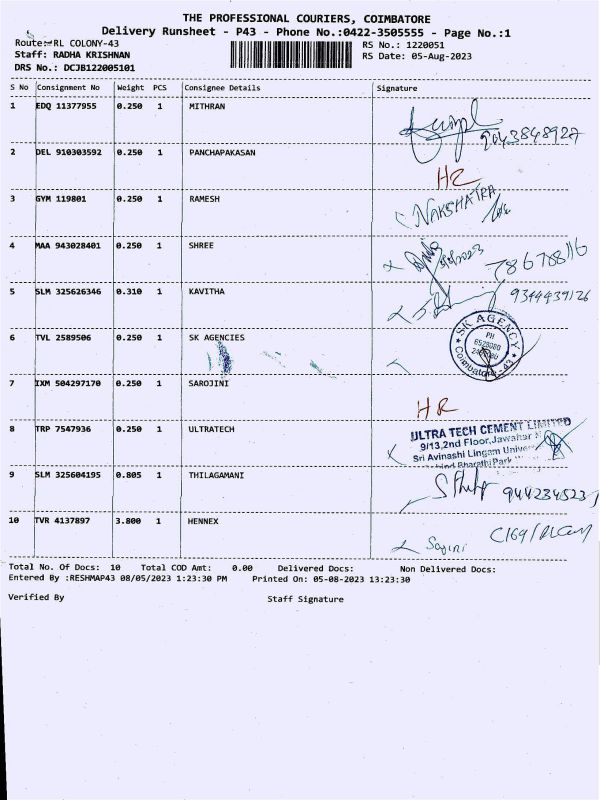 THE PROFESSIONAL COURIERS, COIMBATORE
Delivery Runsheet - P43 - Phone No.:0422-3505555 - Page No.:1
Route:RL COLONY-43
RS No.: 1220051
Staff: RADHA KRISHNAN
RS Date: 05-Aug-2023
DRS No.: DCJB122005101
S No Consignment No Weight PCS Consignee Details Signature
1 EDQ 11377955 0.250 1 MITHRAN
9043848927
2 DEL 910303592 0.250 1 PANCHAPAKASAN
HR
3 GYM 119801 0.250 1 RAMESH
NAKSHATRA
4 MAA 943028401 0.250 1 SHREE
78678816
5 SLM 325626346 0.310 1 KAVITHA
9344439126
6 TVL 2589506 0.250 1 SK AGENCIES
SK AGENCY
PH
Coimbatore -43
7 IXM 504297170 0.250 1 SAROJINI
HR
8 TRP 7547936 0.250 1 ULTRATECH
ULTRA TECH CEMENT LIMITED
9/13,2nd Floor,Jawahar
Sri Avinashi Lingam Univer
Bharathi Park
9 SLM 325604195 0.805 1 THILAGAMANI
944234523
10 TVR 4137897 3.800 1 HENNEX
Total No. Of Docs: 10 Total COD Amt: 0.00 Delivered Docs: Non Delivered Docs:
Entered By :RESHMAP43 08/05/2023 1:23:30 PM Printed On: 05-08-2023 13:23:30
Verified By Staff Signature